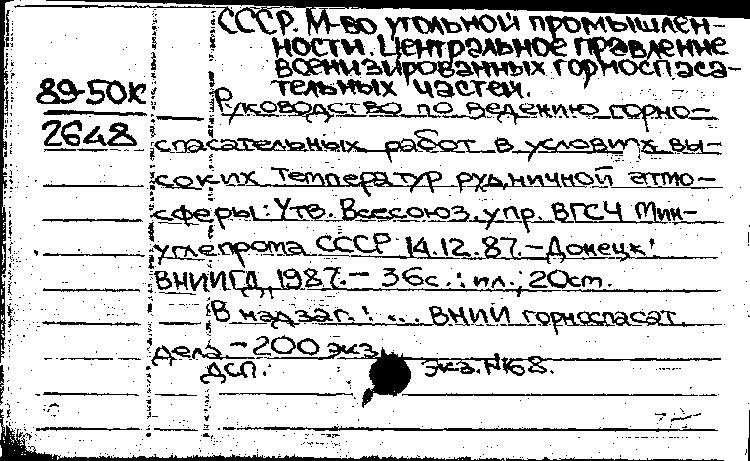 СССР. М-во угольной промышлен-
ности. Центральное правление
военизированных горноспаса-
тельных частей.
89-50К
2648
Руководство по ведению горно-
спасательных работ в условиях вы-
соких температур рудничной атмо-
сферы: Утв. Всесоюз. упр. ВГСЧ Мин-
углепрома СССР 14.12.87. - Донецк:
ВНИИГД, 1987. - 36с.: ил.; 20см.
В надзаг.: ... ВНИИ горноспасат.
дела. - 200 экз.
ДСП. Экз. №68.